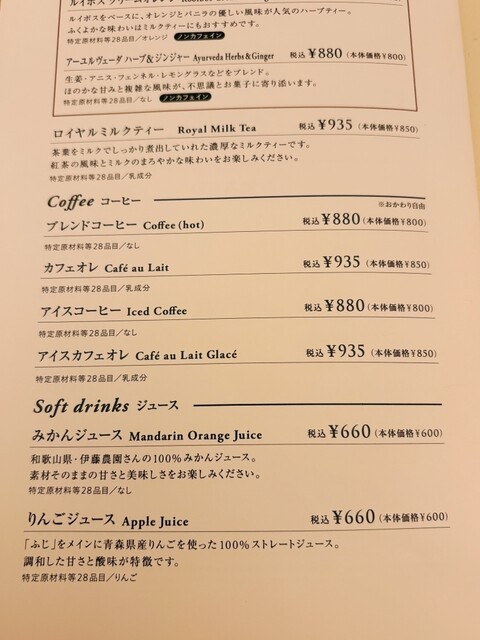 ルイボスをベースに、オレンジとバニラの優しい風味が人気のハーブティー。
ふくよかな味わいはミルクティーにもおすすめです。
特定原材料等28品目/オレンジ ノンカフェイン
アーユルヴェーダ ハーブ&ジンジャー Ayurveda Herbs & Ginger 税込 ¥880 (本体価格¥800)
生姜・アニス・フェンネル・レモングラスなどをブレンド。
ほのかな甘みと複雑な風味が、不思議とお菓子に寄り添います。
特定原材料等28品目/なし ノンカフェイン
ロイヤルミルクティー Royal Milk Tea 税込 ¥935 (本体価格¥850)
茶葉をミルクでしっかり煮出していれた濃厚なミルクティーです。
紅茶の風味とミルクのまろやかな味わいをお楽しみください。
特定原材料等28品目/乳成分
Coffee コーヒー ※おかわり自由
ブレンドコーヒー Coffee (hot) 税込 ¥880 (本体価格¥800)
特定原材料等28品目/なし
カフェオレ Café au Lait 税込 ¥935 (本体価格¥850)
特定原材料等28品目/乳成分
アイスコーヒー Iced Coffee 税込 ¥880 (本体価格¥800)
特定原材料等28品目/なし
アイスカフェオレ Café au Lait Glacé 税込 ¥935 (本体価格¥850)
特定原材料等28品目/乳成分
Soft drinks ジュース
みかんジュース Mandarin Orange Juice 税込 ¥660 (本体価格¥600)
和歌山県・伊藤農園さんの100%みかんジュース。
素材そのままの甘さと美味しさをお楽しみください。
特定原材料等28品目/なし
りんごジュース Apple Juice 税込 ¥660 (本体価格¥600)
「ふじ」をメインに青森県産りんごを使った100%ストレートジュース。
調和した甘さと酸味が特徴です。
特定原材料等28品目/りんご